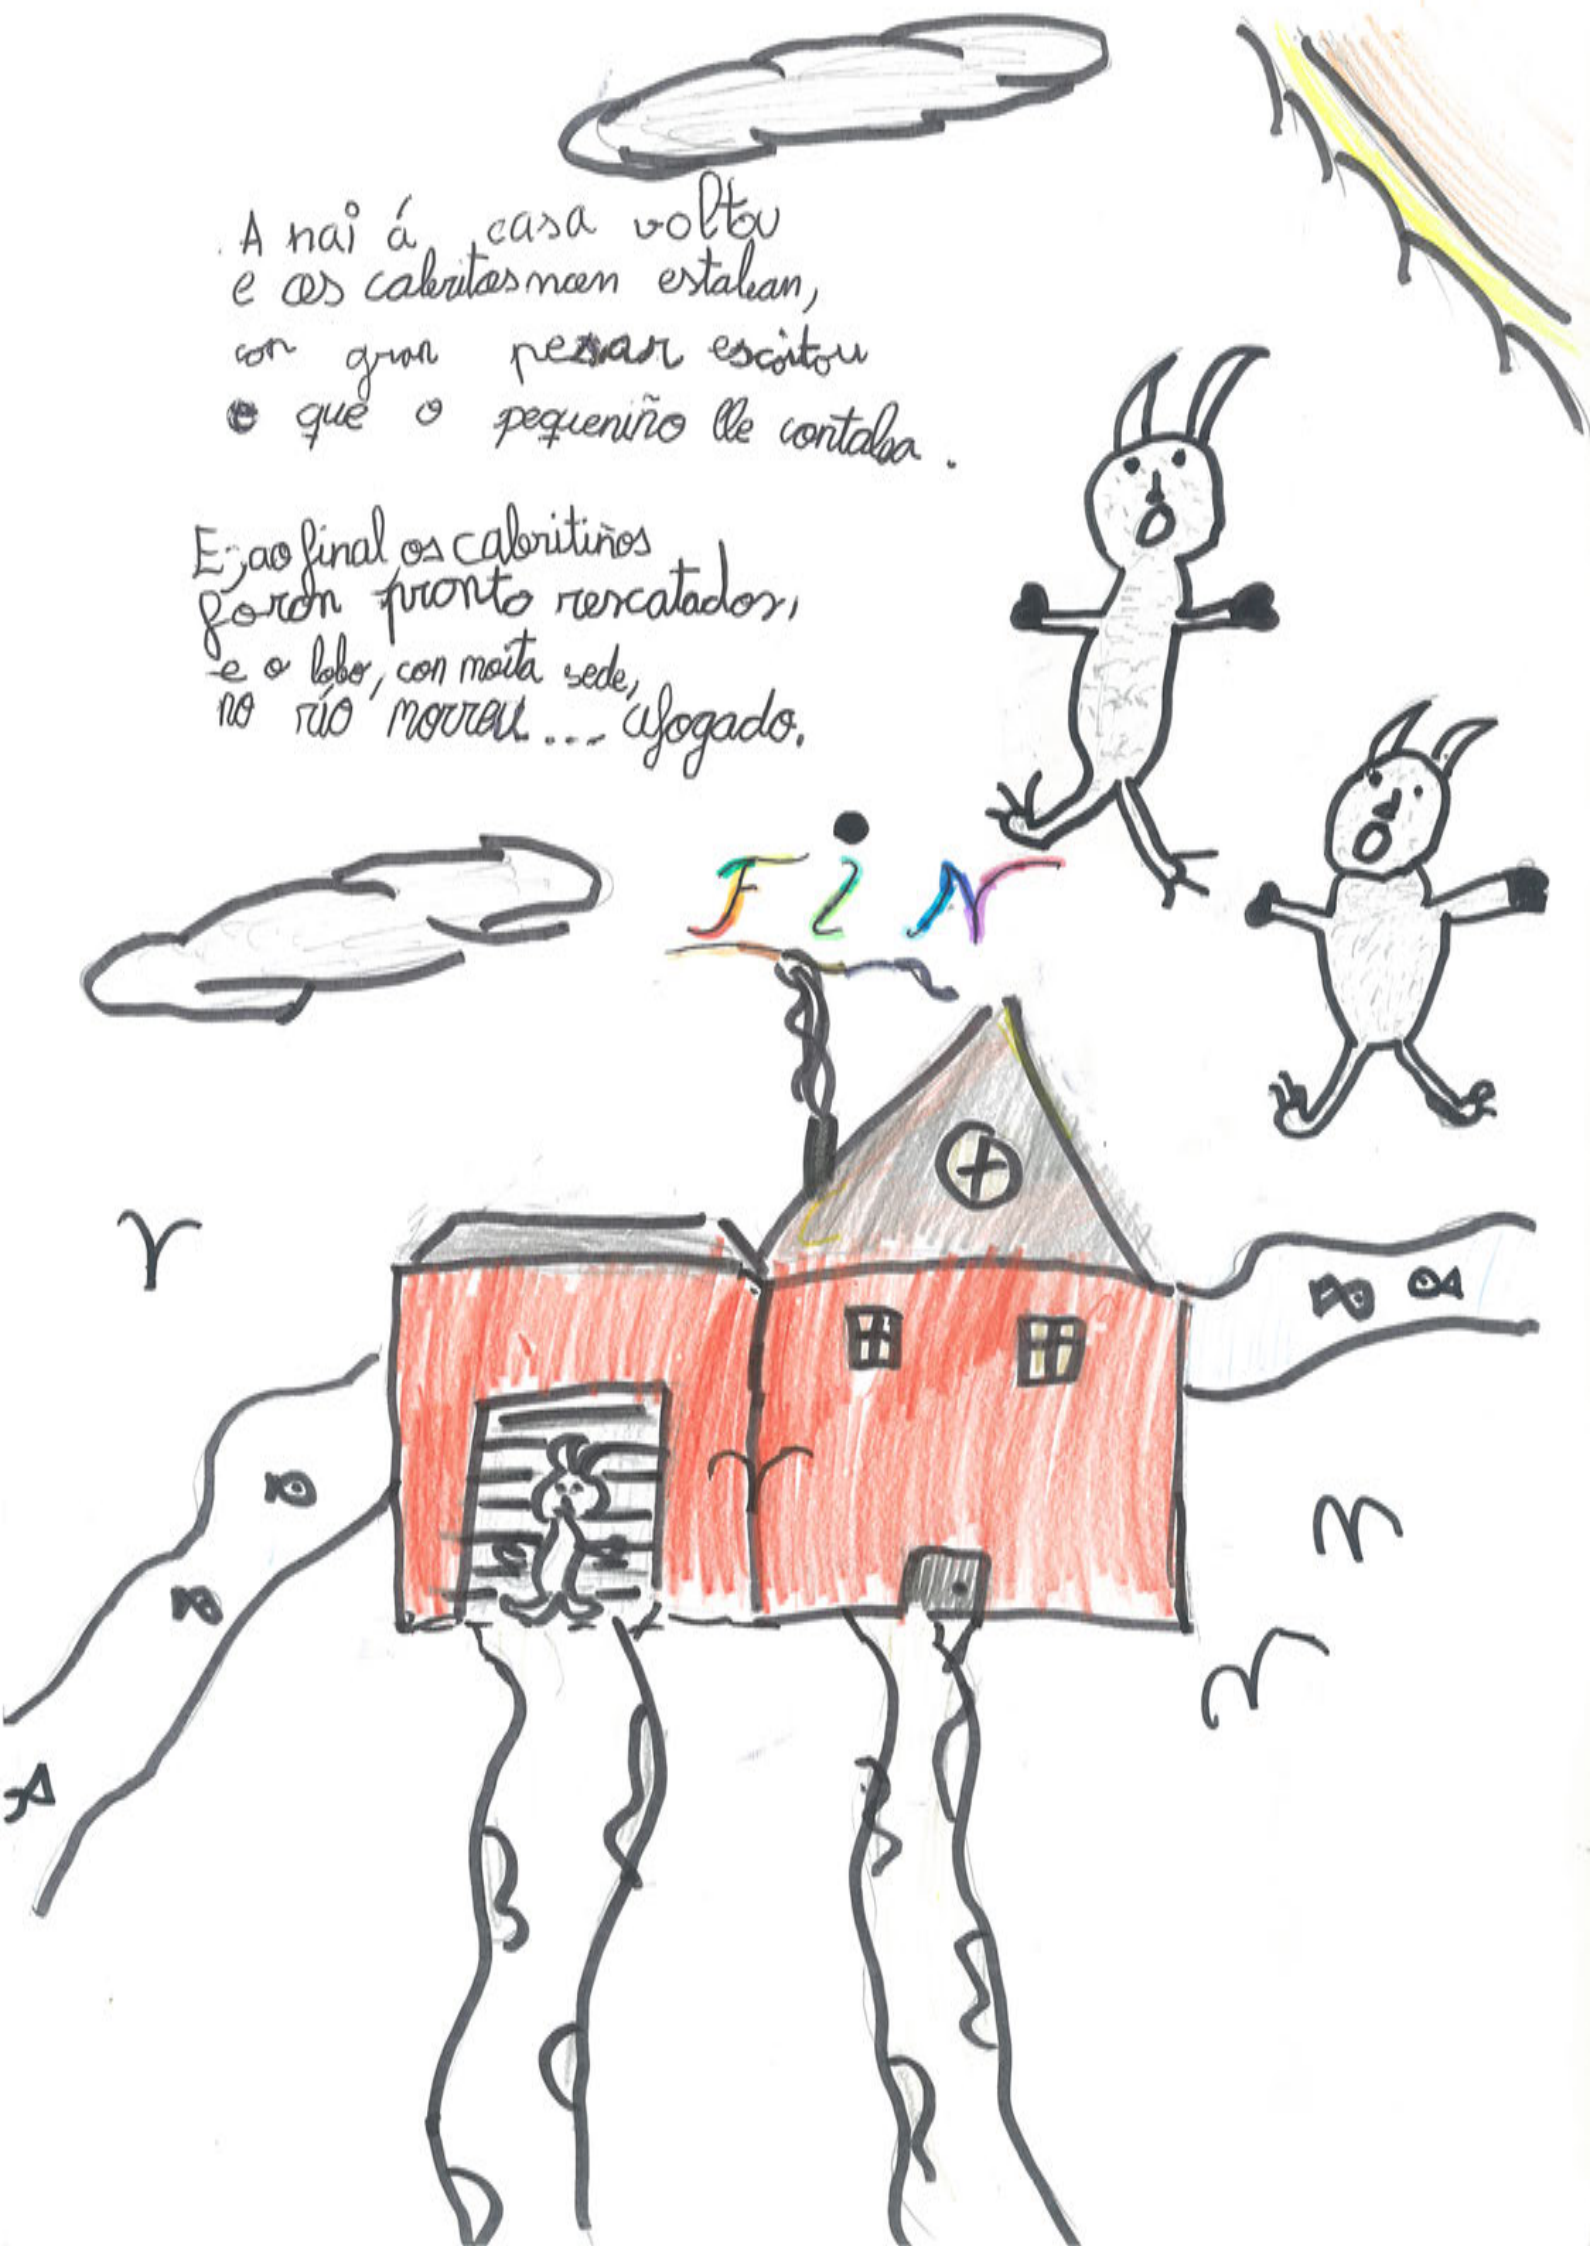 A nai á casa voltou
e os cabritos non estaban,
con gran pesar escoitou
o que o pequeniño lle contaba.
E, ao final os cabritiños
foron pronto rescatados,
e o lobo, con moita sede,
no río morreu.... afogado.
FiN